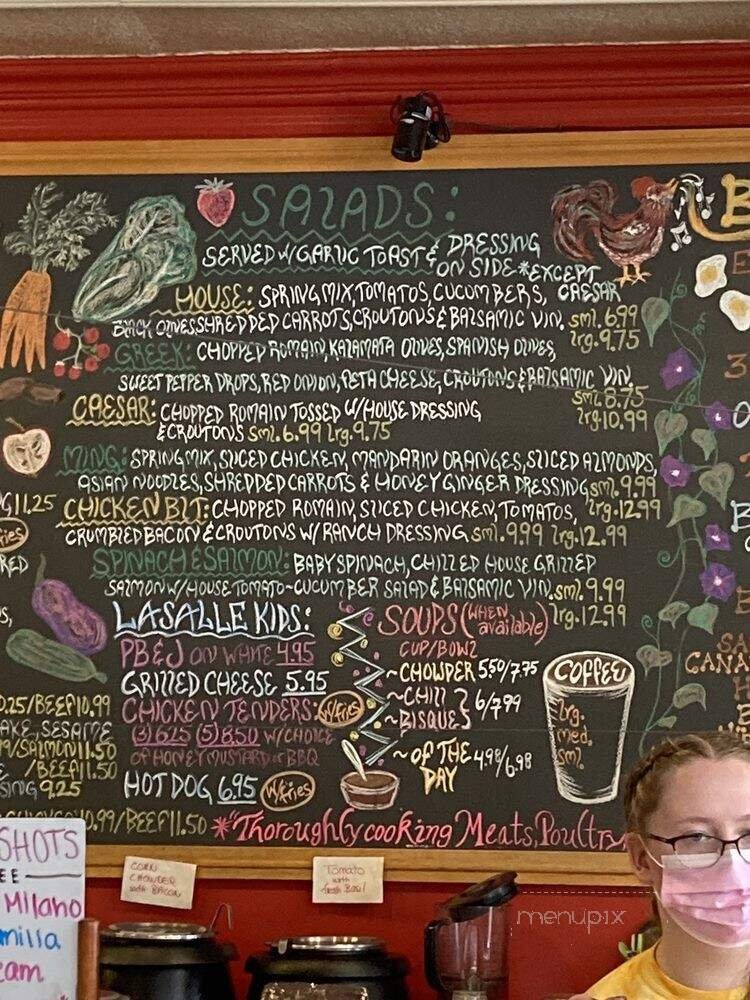 SALADS:
SERVED W/GARLIC TOAST & DRESSING
ON SIDE *EXCEPT
CAESAR
HOUSE: SPRING MIX, TOMATOS, CUCUMBERS,
BLACK OLIVES SHREDDED CARROTS, CROUTONS & BALSAMIC VIN. sml. 6.99
lrg. 9.75
GREEK: CHOPPED ROMAIN, KALAMATA OLIVES, SPANISH OLIVES,
SWEET PEPPER DROPS, RED ONION, FETA CHEESE, CROUTONS & BALSAMIC VIN.
sml. 8.75
lrg. 10.99
CAESAR: CHOPPED ROMAIN TOSSED W/HOUSE DRESSING
& CROUTONS sml. 6.99 lrg. 9.75
MING: SPRING MIX, SLICED CHICKEN, MANDARIN ORANGES, SLICED ALMONDS,
ASIAN NOODLES, SHREDDED CARROTS & HONEY GINGER DRESSING sml. 9.99
lrg. 12.99
CHICKEN BLT: CHOPPED ROMAIN, SLICED CHICKEN, TOMATOS,
CRUMBLED BACON & CROUTONS W/ RANCH DRESSING sml. 9.99 lrg. 12.99
SPINACH & SALMON: BABY SPINACH, CHILLED HOUSE GRILLED
SALMON W/ HOUSE TOMATO-CUCUMBER SALAD & BALSAMIC VIN. sml. 9.99
lrg. 12.99
LASALLE KIDS:
PB&J ON WHITE 4.95
GRILLED CHEESE 5.95
CHICKEN TENDERS: W/Fries
(3) 6.25 (5) 8.50 W/CHOICE
OF HONEY MUSTARD or BBQ
HOT DOG 6.95 W/Fries
SOUPS (WHEN available)
CUP/BOWL
~CHOWDER 5.50/7.75
~CHILI
~BISQUE } 6/7.99
~OF THE DAY 4.98/6.98
COFFEE
lrg.
med.
sml.
G 11.25
RED
0.25/BEEF 10.99
AKE, SESAME
/SALMON 11.50
/BEEF 11.50
SING 9.25
10.99/BEEF 11.50
*Thoroughly cooking Meats, Poultry
CANA
SHOTS
EE
Milano
milla
eam
CORN
CHOWDER
with BACON
Tomato
with
fresh Basil
menupix